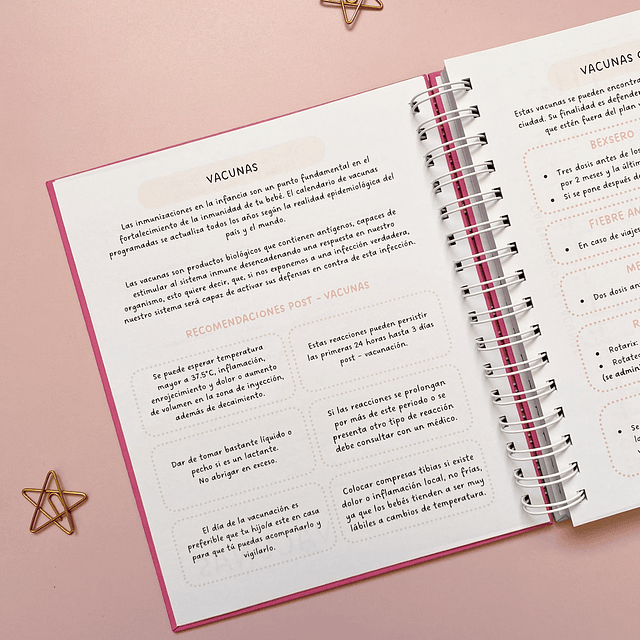 VACUNAS
Las inmunizaciones en la infancia son un punto fundamental en el
fortalecimiento de la inmunidad de tu bebé. El calendario de vacunas
programadas se actualiza todos los años según la realidad epidemiológica del
país y el mundo.
Las vacunas son productos biológicos que contienen antígenos, capaces de
estimular al sistema inmune desencadenando una respuesta en nuestro
organismo, esto quiere decir, que, si nos exponemos a una infección verdadera,
nuestro sistema será capaz de activar sus defensas en contra de esta infección.
RECOMENDACIONES POST - VACUNAS
Se puede esperar temperatura
mayor a 37.5°C, inflamación,
enrojecimiento y dolor o aumento
de volumen en la zona de inyección,
además de decaimiento.
Estas reacciones pueden persistir
las primeras 24 horas hasta 3 días
post - vacunación.
Dar de tomar bastante líquido o
pecho si es un lactante.
No abrigar en exceso.
Si las reacciones se prolongan
por más de este periodo o se
presenta otro tipo de reacción
debe consultar con un médico.
El día de la vacunación es
preferible que tu hijo/a este en casa
para que tú puedas acompañarlo y
vigilarlo.
Colocar compresas tibias si existe
dolor o inflamación local, no frías,
ya que los bebés tienden a ser muy
lábiles a cambios de temperatura.
VACUNAS
Estas vacunas se pueden
ciudad. Su finalidad es
que estén fuera del plan
BEXSERO
Tres dosis antes de los
por 2 meses y la
Si se pone después
FIEBRE
En caso de
Dos dosis
Rotarix:
(se
Se